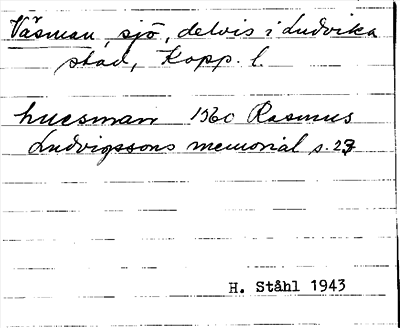 Väsman, sjö, delvis i Ludvika
stad, Kopp. l.
huesman 1560 Rasmus
Ludvigssons memorial s. 23
H. Ståhl 1943